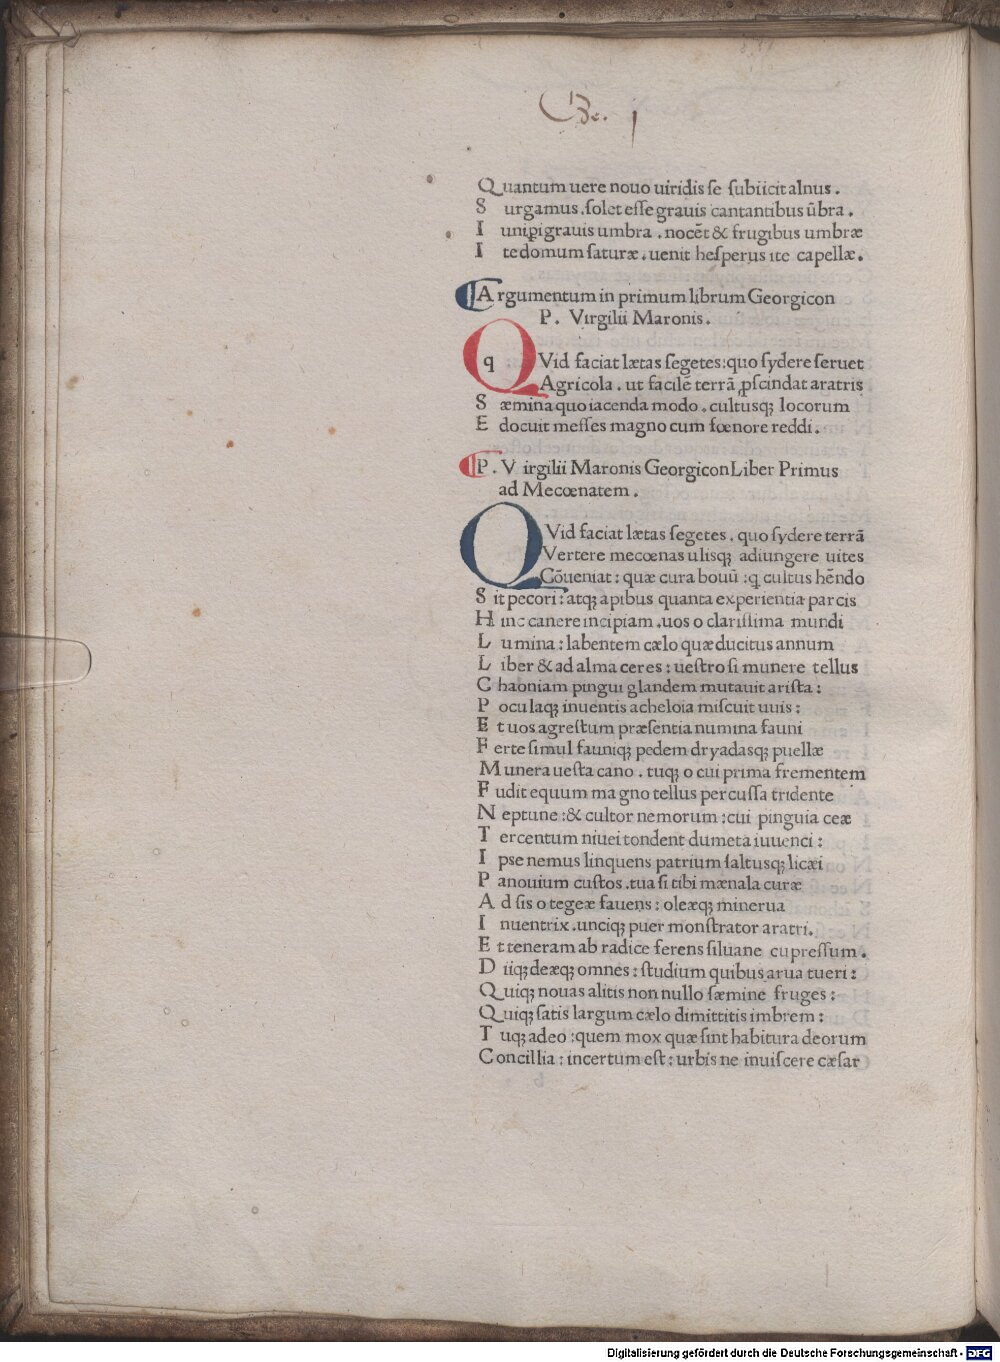 Ge. 1
Quantum uere nouo uiridis se subiicit alnus.
Surgamus. solet esse grauis cantantibus ūbra.
Iuniꝑi grauis umbra. nocēt & frugibus umbræ
Ite domum saturæ. uenit hesperus ite capellæ.
Argumentum in primum librum Georgicon
P. Virgilii Maronis.
QVid faciat lætas segetes: quo sydere seruet
Agricola. ut facilē terrā ꝓscindat aratris
Sæmina quo iacenda modo. cultusqȝ locorum
Edocuit messes magno cum fœnore reddi.
P. Virgilii Maronis Georgicon Liber Primus
ad Mecœnatem.
QVid faciat lætas segetes. quo sydere terrā
Vertere mecœnas ulisqȝ adiungere uites
Cōueniat: quæ cura bouū: q cultus hēndo
Sit pecori: atqȝ apibus quanta experientia parcis
Hinc canere incipiam. uos o clarissima mundi
Lumina: labentem cælo quæ ducitus annum
Liber & ad alma ceres: uestro si munere tellus
Chaoniam pingui glandem mutauit arista:
Poculaqȝ inuentis acheloia miscuit uuis:
Et uos agrestum præsentia numina fauni
Ferte simul fauniqȝ pedem dryadasqȝ puellæ
Munera uesta cano. tuqȝ o cui prima frementem
Fudit equum magno tellus percussa tridente
Neptune: & cultor nemorum: cui pinguia ceæ
Tercentum niuei tondent dumeta iuuenci:
Ipse nemus linquens patrium saltusqȝ licæi
Pan ouium custos. tua si tibi mænala curæ
Adsis o tegeæ fauens: oleæqȝ minerua
Inuentrix. unciqȝ puer monstrator aratri.
Et teneram ab radice ferens siluane cupressum.
Diiqȝ deæqȝ omnes: studium quibus arua tueri:
Quiqȝ nouas alitis non nullo sæmine fruges:
Quiqȝ satis largum cælo dimittitis imbrem:
Tuqȝ adeo: quem mox quæ sint habitura deorum
Concillia: incertum est: urbis ne inuiscere cæsar
Digitalisierung gefördert durch die Deutsche Forschungsgemeinschaft - DFG